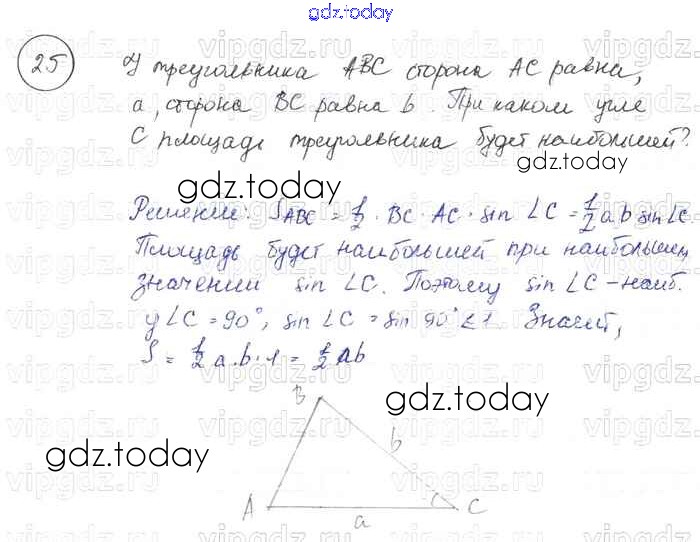 gdz.today
25
У треугольника ABC сторона AC равна,
a, сторона BC равна b При каком угле
C площадь треугольника будет наибольшей?
gdz.today
gdz.today
Решение: S ABC = 1/2 · BC · AC · sin ∠C = 1/2 a.b sin∠C
Площадь будет наибольшей при наибольшем
значении sin ∠C. Поэтому sin ∠C - наиб.
у ∠C = 90°, sin ∠C = sin 90° ≤ 1. Значит,
S = 1/2 a.b · 1 = 1/2 ab
B
gdz.today
gdz.today
b
A
C
a
vipgdz.ru